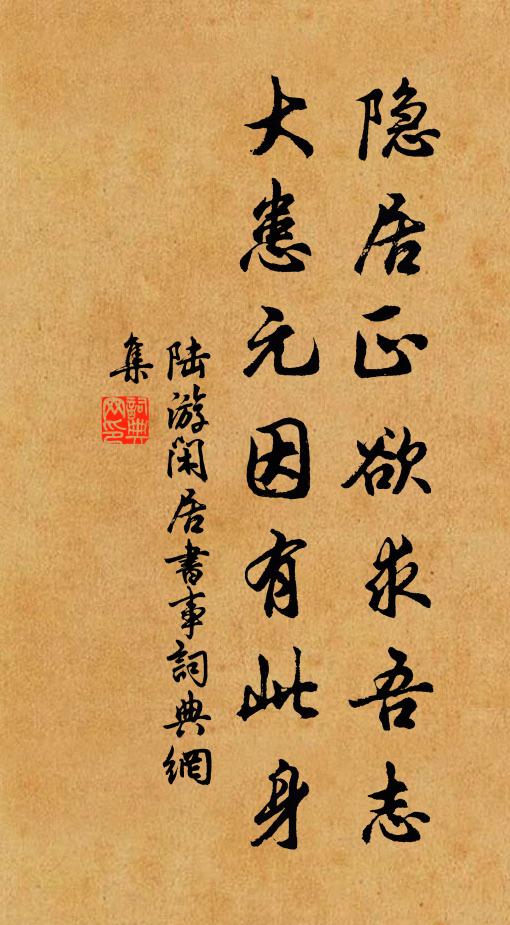 隐居正欲求吾志
大患元因有此身
陆游闲居书事詞典網
集
詞典網印